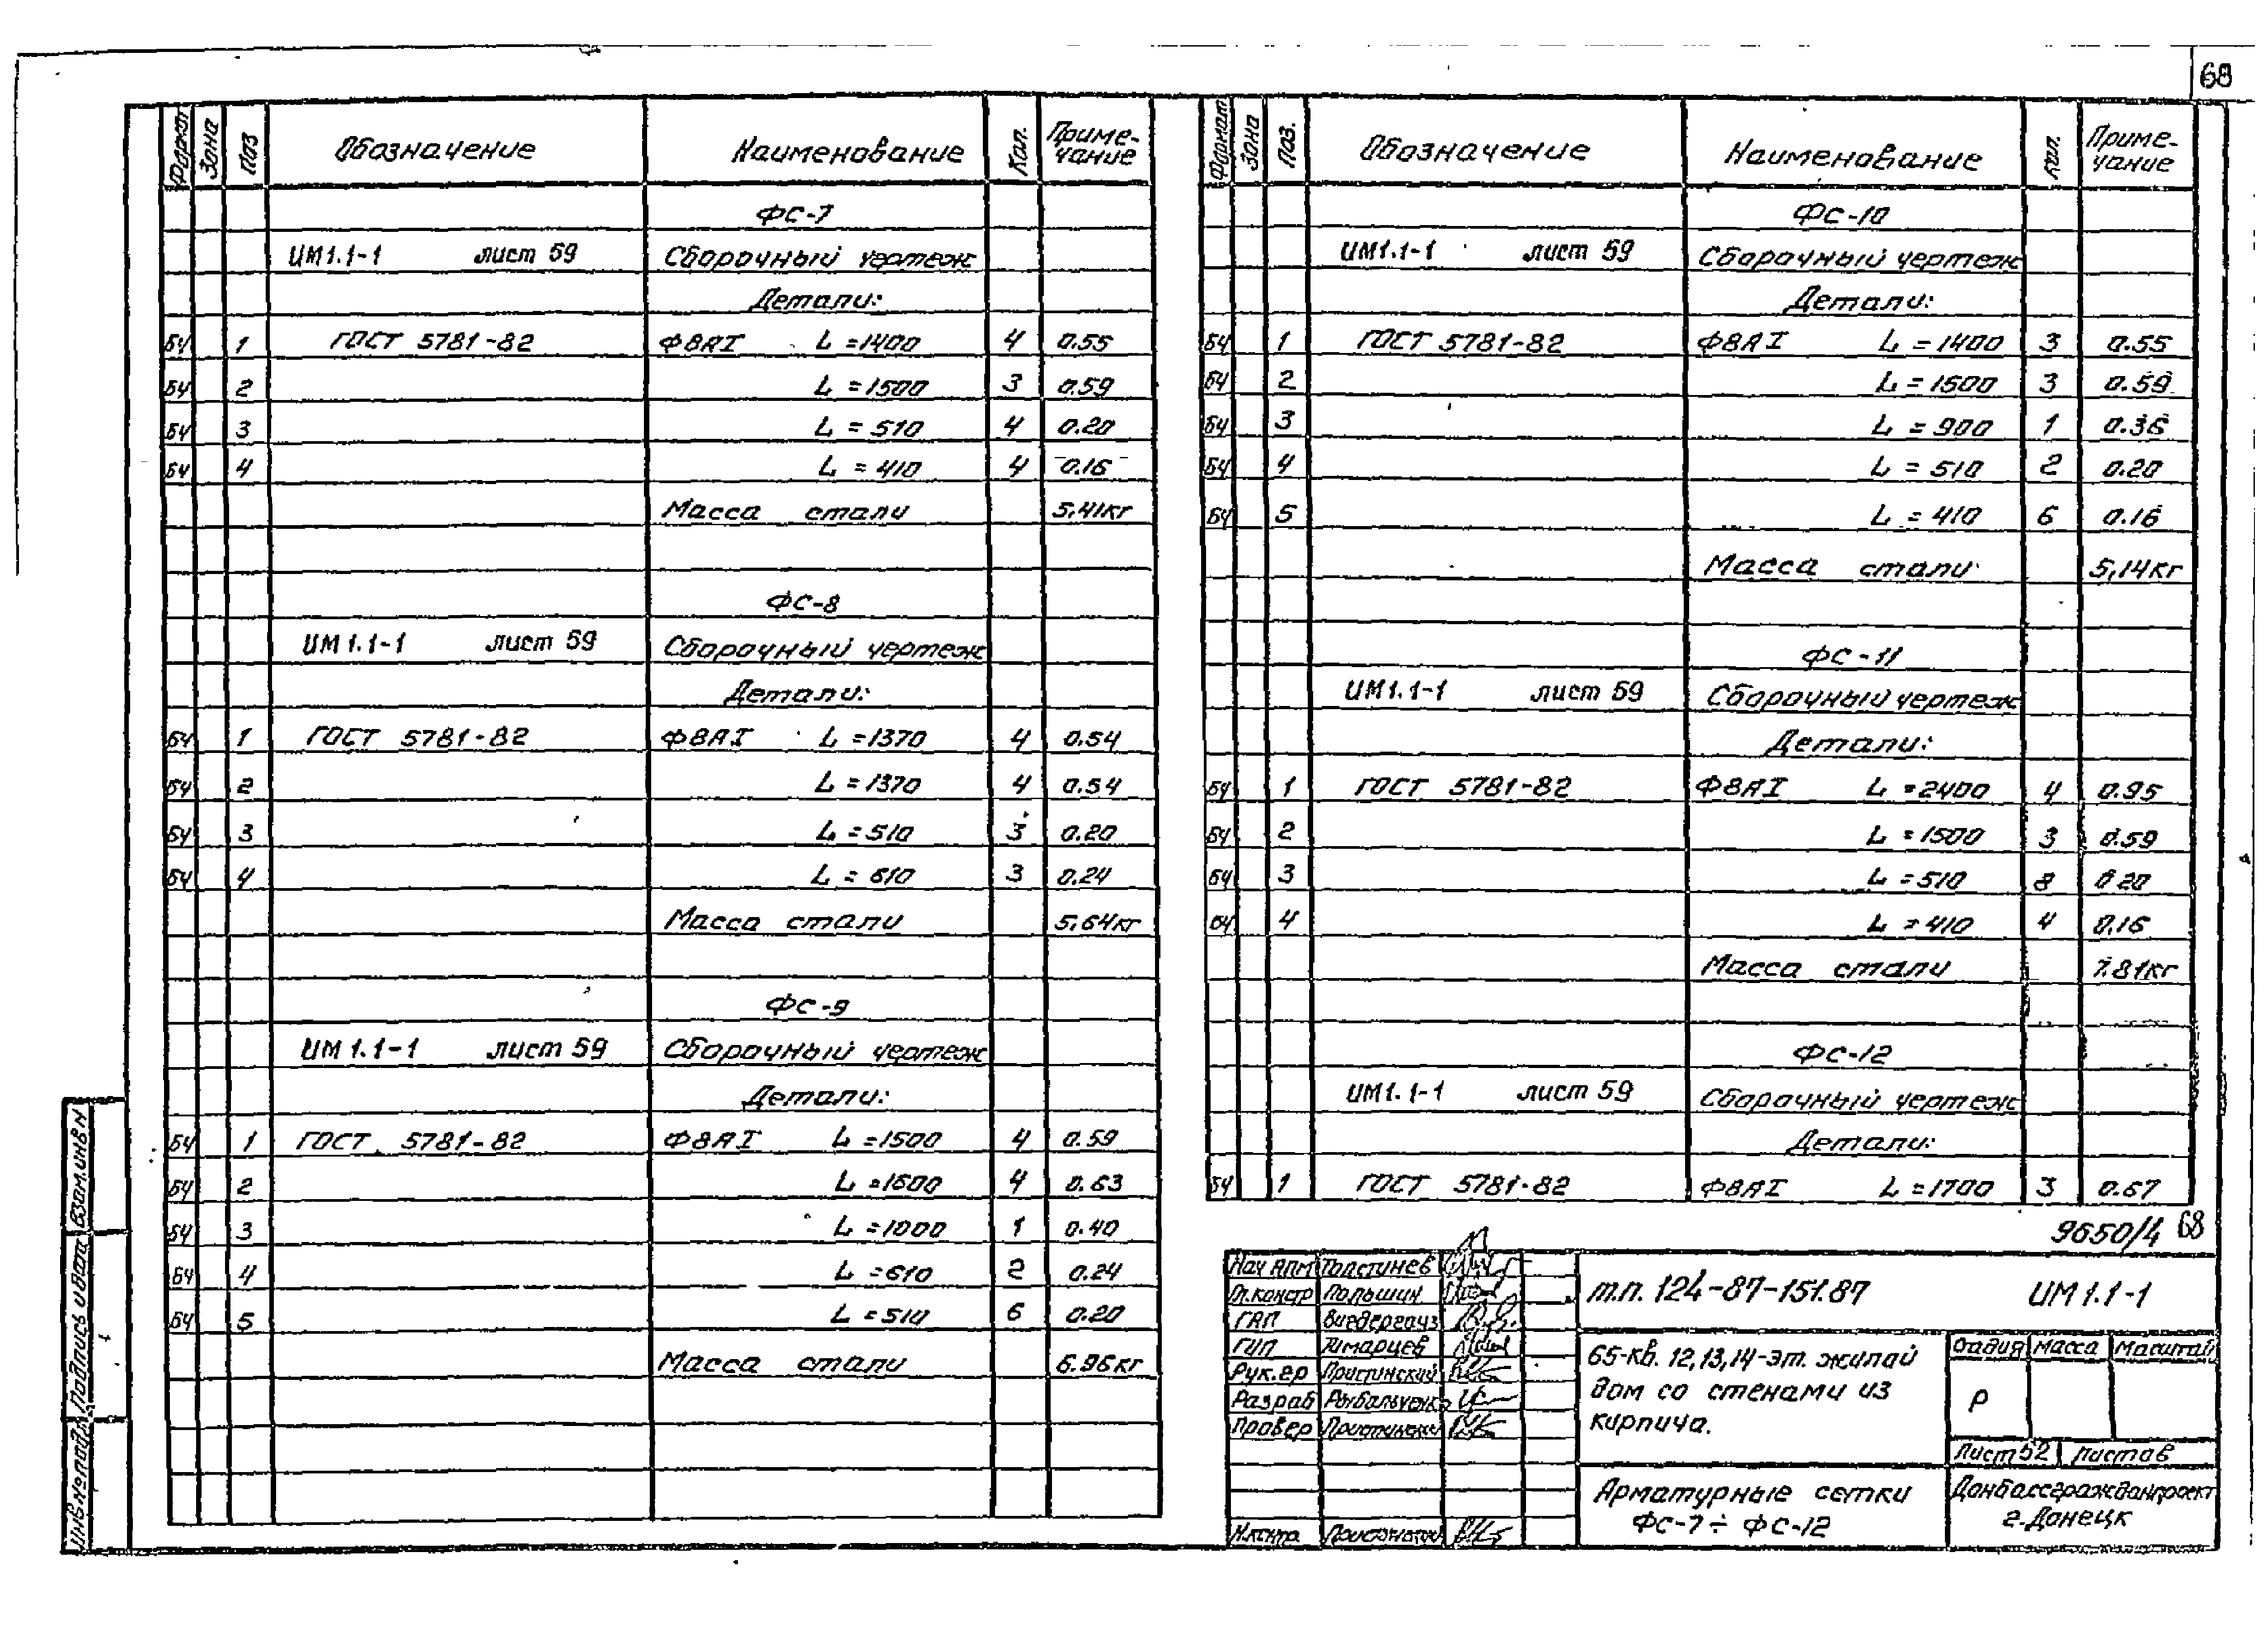 68
Формат Зона Поз Обозначение Наименование Кол. Приме-
чание
ФС-7
ИМ1.1-1 лист 59 Сборочный чертеж
Детали:
БЧ 1 ГОСТ 5781-82 Ф8АI L=1400 4 0.55
БЧ 2 L=1500 3 0.59
БЧ 3 L=510 4 0.20
БЧ 4 L=410 4 0.16
Масса стали 5,41кг
ФС-8
ИМ1.1-1 лист 59 Сборочный чертеж
Детали:
БЧ 1 ГОСТ 5781-82 Ф8АI L=1370 4 0.54
БЧ 2 L=1370 4 0.54
БЧ 3 L=510 3 0.20
БЧ 4 L=610 3 0.24
Масса стали 5,64кг
ФС-9
ИМ1.1-1 лист 59 Сборочный чертеж
Детали:
БЧ 1 ГОСТ 5781-82 Ф8АI L=1500 4 0.59
БЧ 2 L=1600 4 0.63
БЧ 3 L=1000 1 0.40
БЧ 4 L=610 2 0.24
БЧ 5 L=510 6 0.20
Масса стали 6.96кг
Формат Зона Поз. Обозначение Наименование Кол. Приме-
чание
ФС-10
ИМ1.1-1 лист 59 Сборочный чертеж
Детали:
БЧ 1 ГОСТ 5781-82 Ф8АI L=1400 3 0.55
БЧ 2 L=1500 3 0.59
БЧ 3 L=900 1 0.36
БЧ 4 L=510 2 0.20
БЧ 5 L=410 6 0.16
Масса стали 5,14кг
ФС-11
ИМ1.1-1 лист 59 Сборочный чертеж
Детали:
БЧ 1 ГОСТ 5781-82 Ф8АI L=2400 4 0.95
БЧ 2 L=1500 3 0.59
БЧ 3 L=510 8 0.20
БЧ 4 L=410 4 0.16
Масса стали 7.81кг
ФС-12
ИМ1.1-1 лист 59 Сборочный чертеж
Детали:
БЧ 1 ГОСТ 5781-82 Ф8АI L=1700 3 0.67
9650/4 68
Нач АПМ Толстичев
Гл.констр Польшин
ГАП
ГИП
Рук.гр Пристинский
Разраб
Провер
Н.контр
т.п. 124-87-151.87 ИМ1.1-1
65-кв. 12,13,14-эт. жилой
дом со стенами из
кирпича.
Стадия Масса Масштаб
Р
Лист 52 Листов
Арматурные сетки
ФС-7÷ФС-12
Донбассгражданпроект
г.Донецк
Взам.инв N
Подпись и дата
Инв №подл